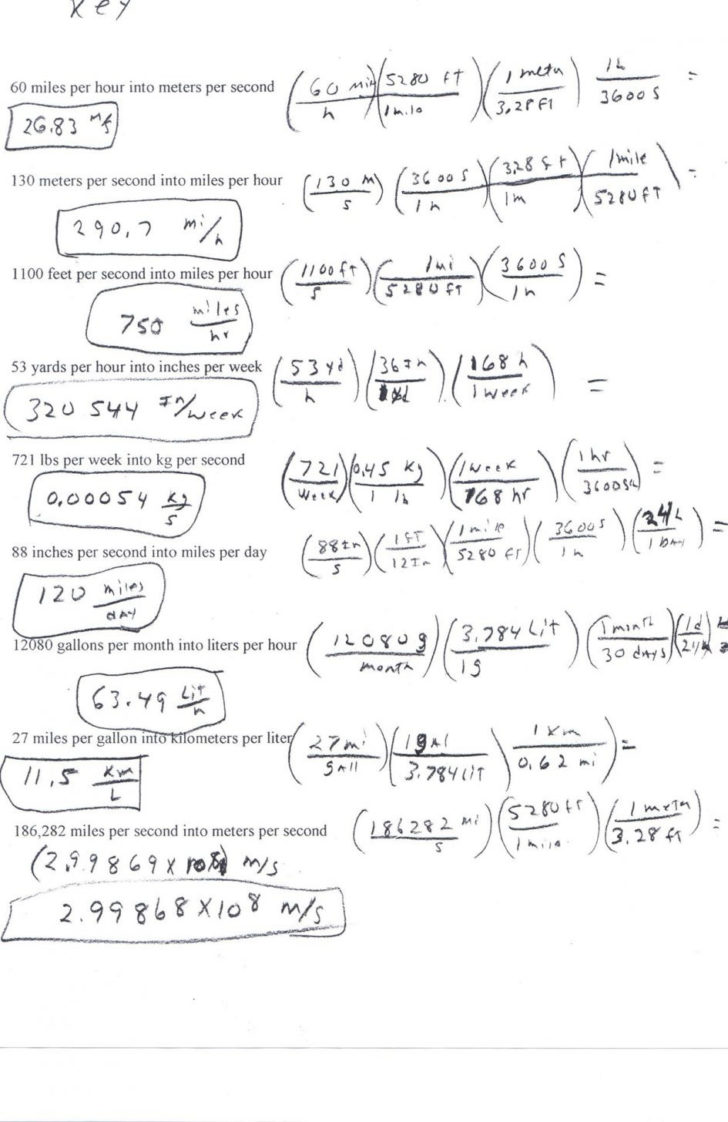 Key
60 miles per hour into meters per second (60 mi/h)(5280 FT/1 mile)(1 meter/3.28 FT) 1h/3600 S =
26.83 m/s
130 meters per second into miles per hour (130 M/S)(3600 S/1h)(3.28 ft/1m)(1mile/5280FT) =
290.7 mi/h
1100 feet per second into miles per hour (1100 ft/S)(1mi/5280 FT)(3600 S/1h) =
750 miles/hr
53 yards per hour into inches per week (53 yd/h)(36 In/1yd)(168 h/1 week) =
320 544 In/week
721 lbs per week into kg per second (721/week)(0.45 kg/1 lb)(1 week/168 hr)(1 hr/3600S) =
0.00054 kg/S
88 inches per second into miles per day (88In/S)(1 FT/12In)(1 mile/5280 FT)(3600S/1h)(24h/1 DAY) =
120 miles/dAY
12080 gallons per month into liters per hour (12080g/month)(3.784 Lit/1g)(1month/30 dAYS)(1d/24h) =
63.49 Lit/h
27 miles per gallon into kilometers per liter (27 mi/gall)(1 gAl/3.784 Lit)(1 Km/0.62 mi) =
11.5 Km/L
186,282 miles per second into meters per second (186282 mi/S)(5280 ft/1 mile)(1 meter/3.28 ft) =
(2.99869 X 10^8) m/s
2.99868 X 10^8 m/s